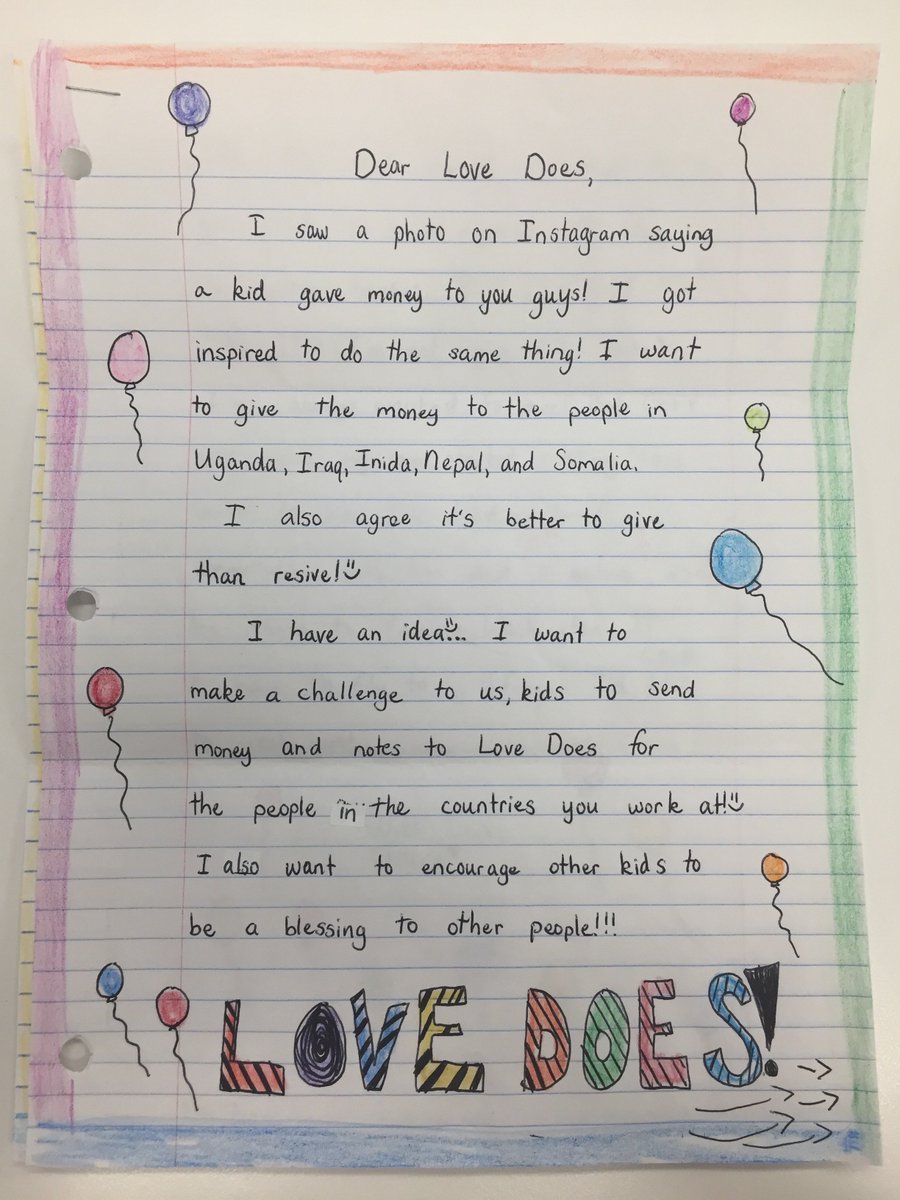 Dear Love Does,
I saw a photo on Instagram saying
a kid gave money to you guys! I got
inspired to do the same thing! I want
to give the money to the people in
Uganda, Iraq, Inida, Nepal, and Somalia.
I also agree it's better to give
than resive!
I have an idea... I want to
make a challenge to us, kids to send
money and notes to Love Does for
the people in the countries you work at!
I also want to encourage other kids to
be a blessing to other people!!!
LOVE DOES!